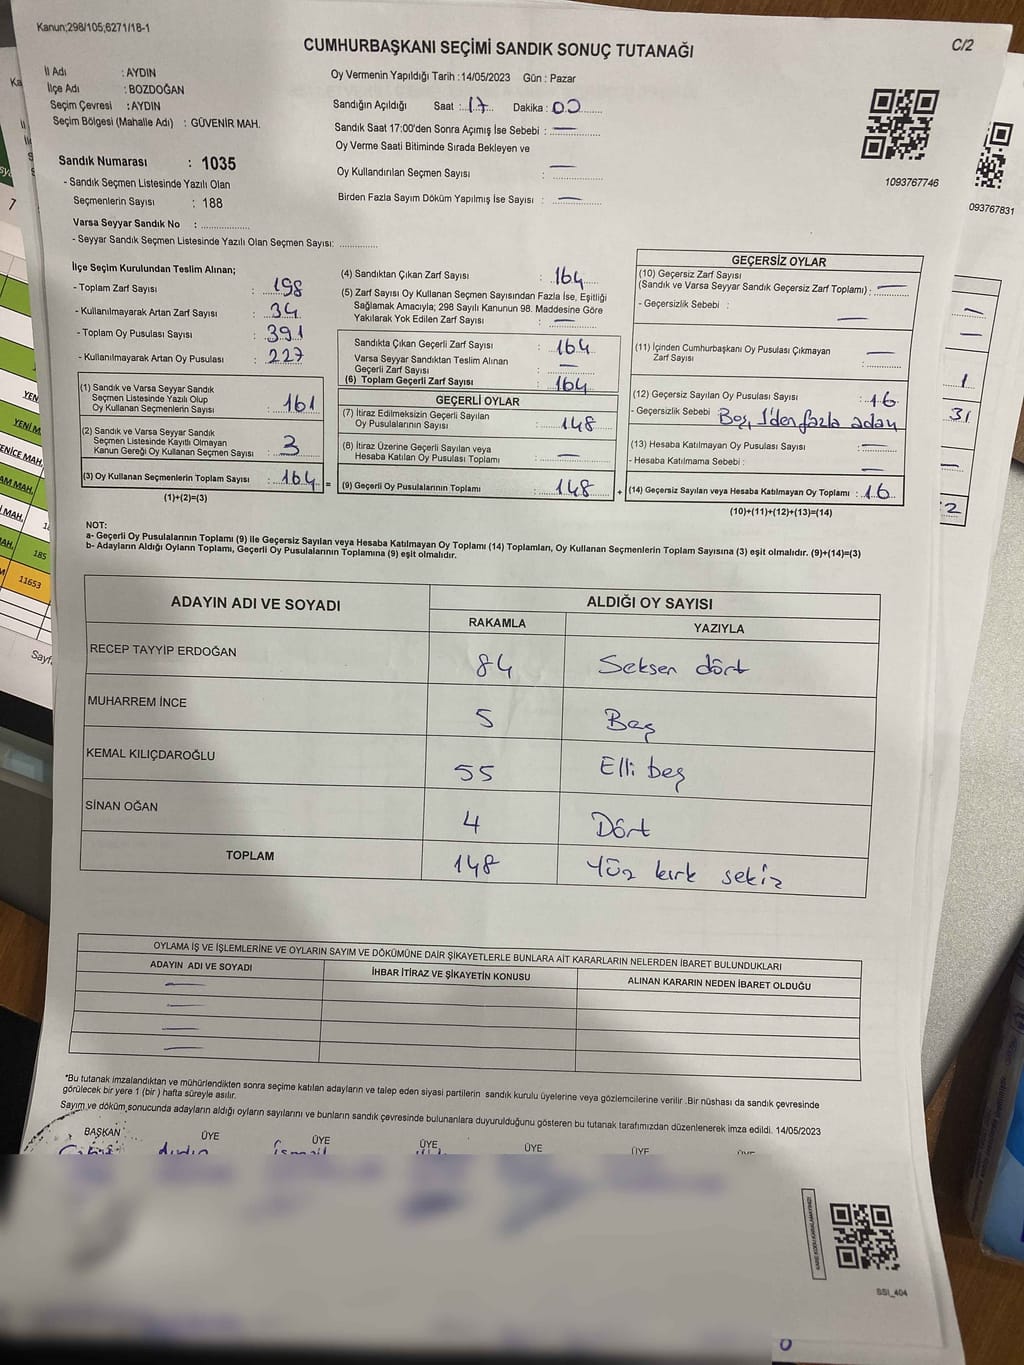 Kanun;298/105;6271/18-1
C/2
CUMHURBAŞKANI SEÇİMİ SANDIK SONUÇ TUTANAĞI
İl Adı : AYDIN
İlçe Adı : BOZDOĞAN
Seçim Çevresi : AYDIN
Seçim Bölgesi (Mahalle Adı) : GÜVENİR MAH.
Sandık Numarası : 1035
- Sandık Seçmen Listesinde Yazılı Olan
Seçmenlerin Sayısı : 188
Varsa Seyyar Sandık No :
- Seyyar Sandık Seçmen Listesinde Yazılı Olan Seçmen Sayısı:
Oy Vermenin Yapıldığı Tarih : 14/05/2023 Gün : Pazar
Sandığın Açıldığı Saat : 17 Dakika : 00
Sandık Saat 17:00'den Sonra Açımış İse Sebebi : —
Oy Verme Saati Bitiminde Sırada Bekleyen ve
Oy Kullandırılan Seçmen Sayısı : —
Birden Fazla Sayım Döküm Yapılmış İse Sayısı : —
1093767746
093767831
İlçe Seçim Kurulundan Teslim Alınan;
- Toplam Zarf Sayısı : 198
- Kullanılmayarak Artan Zarf Sayısı : 34
- Toplam Oy Pusulası Sayısı : 391
- Kullanılmayarak Artan Oy Pusulası : 227
(1) Sandık ve Varsa Seyyar Sandık
Seçmen Listesinde Yazılı Olup
Oy Kullanan Seçmenlerin Sayısı : 161
(2) Sandık ve Varsa Seyyar Sandık
Seçmen Listesinde Kayıtlı Olmayan
Kanun Gereği Oy Kullanan Seçmen Sayısı : 3
(3) Oy Kullanan Seçmenlerin Toplam Sayısı : 164
(1)+(2)=(3)
(4) Sandıktan Çıkan Zarf Sayısı : 164
(5) Zarf Sayısı Oy Kullanan Seçmen Sayısından Fazla İse, Eşitliği
Sağlamak Amacıyla; 298 Sayılı Kanunun 98. Maddesine Göre
Yakılarak Yok Edilen Zarf Sayısı : —
Sandıkta Çıkan Geçerli Zarf Sayısı : 164
Varsa Seyyar Sandıktan Teslim Alınan
Geçerli Zarf Sayısı : —
(6) Toplam Geçerli Zarf Sayısı : 164
GEÇERLİ OYLAR
(7) İtiraz Edilmeksizin Geçerli Sayılan
Oy Pusulalarının Sayısı : 148
(8) İtiraz Üzerine Geçerli Sayılan veya
Hesaba Katılan Oy Pusulası Toplamı : —
(9) Geçerli Oy Pusulalarının Toplamı : 148
GEÇERSİZ OYLAR
(10) Geçersiz Zarf Sayısı
(Sandık ve Varsa Seyyar Sandık Geçersiz Zarf Toplamı) : —
- Geçersizlik Sebebi : —
(11) İçinden Cumhurbaşkanı Oy Pusulası Çıkmayan
Zarf Sayısı : —
(12) Geçersiz Sayılan Oy Pusulası Sayısı : 16
- Geçersizlik Sebebi : Boş, 1'den fazla aday
(13) Hesaba Katılmayan Oy Pusulası Sayısı : —
- Hesaba Katılmama Sebebi : —
(14) Geçersiz Sayılan veya Hesaba Katılmayan Oy Toplamı : 16
(10)+(11)+(12)+(13)=(14)
NOT:
a- Geçerli Oy Pusulalarının Toplamı (9) İle Geçersiz Sayılan veya Hesaba Katılmayan Oy Toplamı (14) Toplamları, Oy Kullanan Seçmenlerin Toplam Sayısına (3) eşit olmalıdır. (9)+(14)=(3)
b- Adayların Aldığı Oyların Toplamı, Geçerli Oy Pusulalarının Toplamına (9) eşit olmalıdır.
ADAYIN ADI VE SOYADI ALDIĞI OY SAYISI
RAKAMLA YAZIYLA
RECEP TAYYİP ERDOĞAN 84 Seksen dört
MUHARREM İNCE 5 Beş
KEMAL KILIÇDAROĞLU 55 Elli beş
SİNAN OĞAN 4 Dört
TOPLAM 148 Yüz kırk sekiz
OYLAMA İŞ VE İŞLEMLERİNE VE OYLARIN SAYIM VE DÖKÜMÜNE DAİR ŞİKAYETLERLE BUNLARA AİT KARARLARIN NELERDEN İBARET BULUNDUKLARI
ADAYIN ADI VE SOYADI İHBAR İTİRAZ VE ŞİKAYETİN KONUSU ALINAN KARARIN NEDEN İBARET OLDUĞU
—
—
—
—
*Bu tutanak imzalandıktan ve mühürlendikten sonra seçime katılan adayların ve talep eden siyasi partilerin sandık kurulu üyelerine veya gözlemcilerine verilir. Bir nüshası da sandık çevresinde
görülecek bir yere 1 (bir) hafta süreyle asılır.
Sayım ve döküm sonucunda adayların aldığı oyların sayılarını ve bunların sandık çevresinde bulunanlara duyurulduğunu gösteren bu tutanak tarafımızdan düzenlenerek imza edildi. 14/05/2023
BAŞKAN ÜYE ÜYE ÜYE ÜYE ÜYE
SSI_404
YENİ M
ENİCE MAH.
AM MAH.
MAH.
185
11653
Sayfa
1
31
2